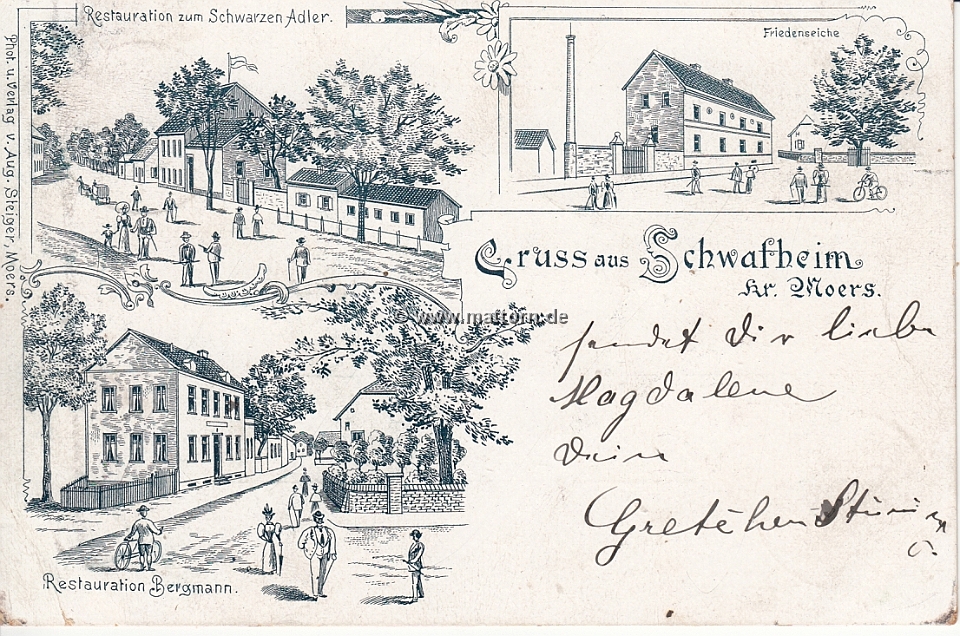 Restauration zum Schwarzen Adler.
Friedenseiche
Phot. u. Verlag v. Aug. Steiger, Moers.
Gruss aus Schwafheim
Kr. Moers.
© www.mattorn.de
sendet Dir liebe
Magdalene
Dein
Gretchen
Restauration Bergmann.